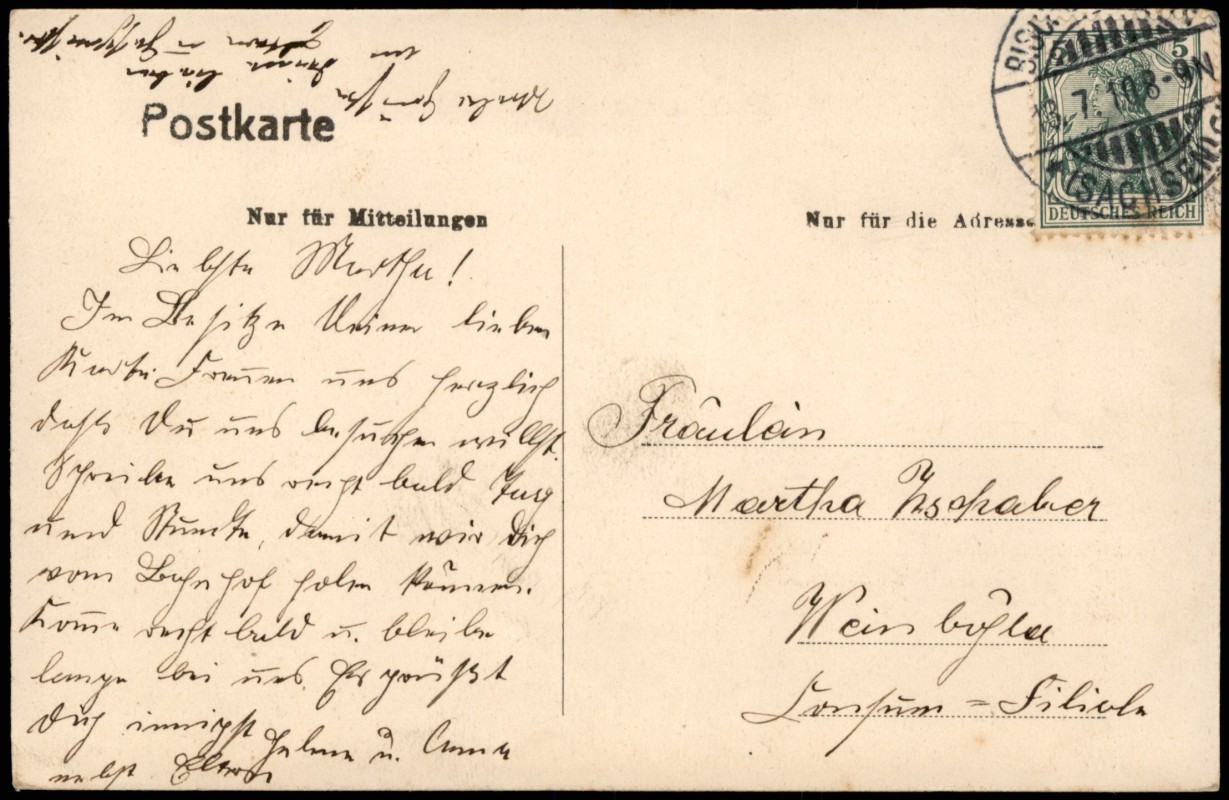 Postkarte
Nur für Mitteilungen
Nur für die Adresse
5 5
DEUTSCHES REICH
BISCH
7.10. 8-9 N
* (SACHSEN)
Liebste Martha!
Im Besitze Deiner lieben
Karte Freuen uns herzlich
daß Du uns besuchen willst.
Schreibe uns recht bald Tag
und Stunde, damit wir Dich
vom Bahnhof holen können.
Komme recht bald u. bleibe
lange bei uns. Es grüßt
Dich innigst Helene u. Anna
nebst Eltern
Fräulein
Martha Zschaber
Weinböhla
Consum = Filiale
Viele Grüße
an Deine lieben
Eltern u. Geschwister.